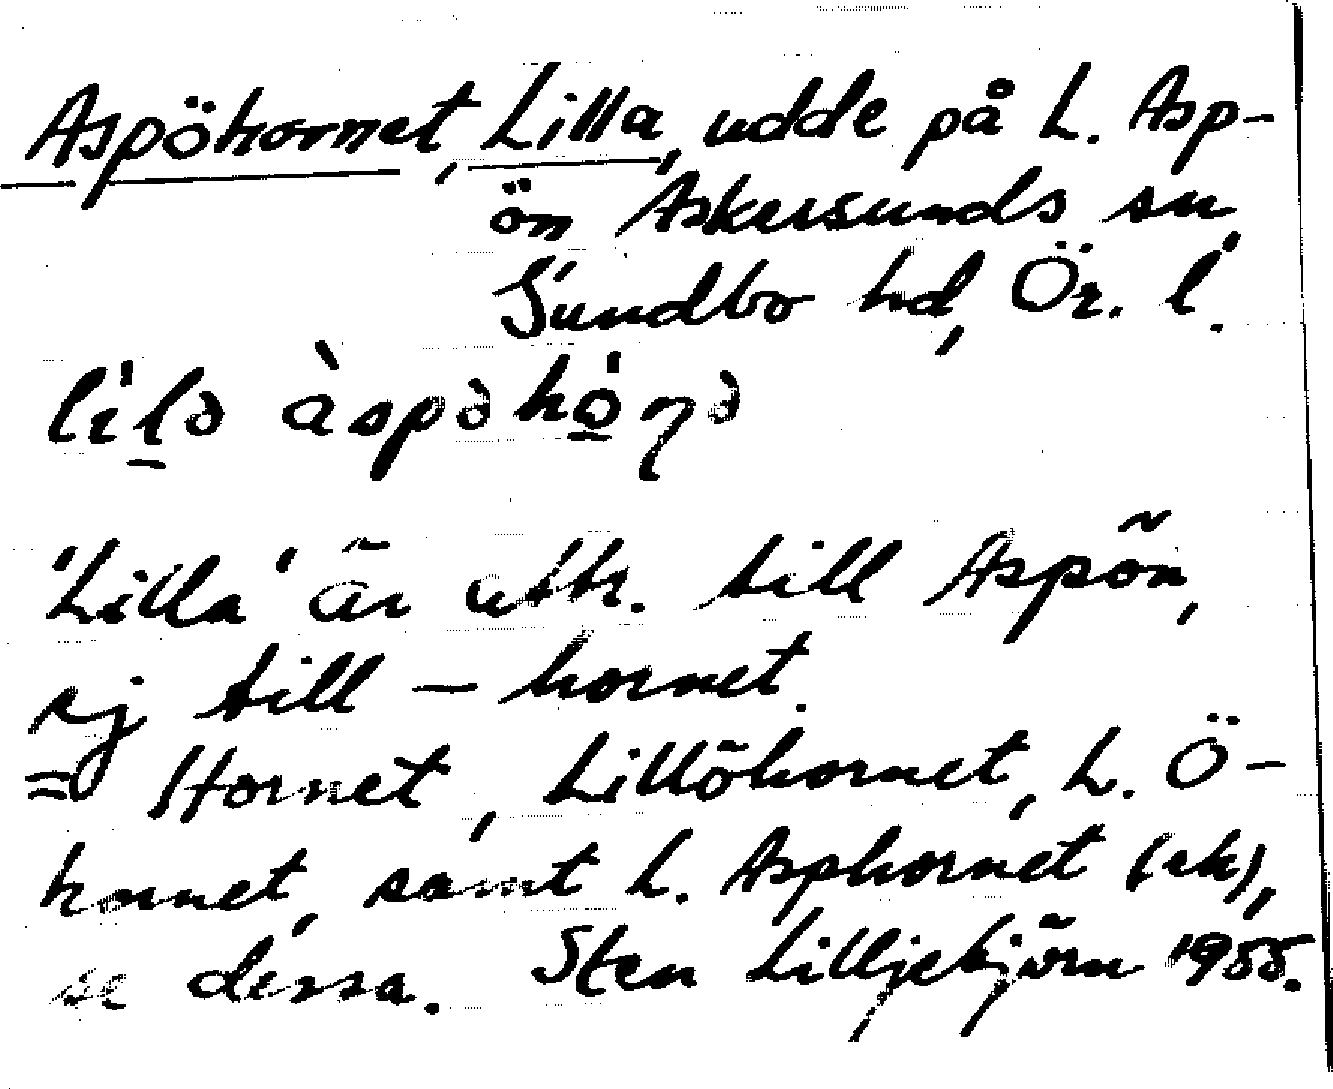 Aspöhornet, Lilla, udde på L. Asp-
ön Askersunds sn,
Sundbo hd, Ör. l.
lilə àspəho̱ɳə
'Lilla' är attr. till Aspön,
ej till – hornet.
= Hornet, Lillöhornet, L. Ö-
hornet, samt L. Asphornet (ek),
se dessa. Sten Lilljebjörn 1955.